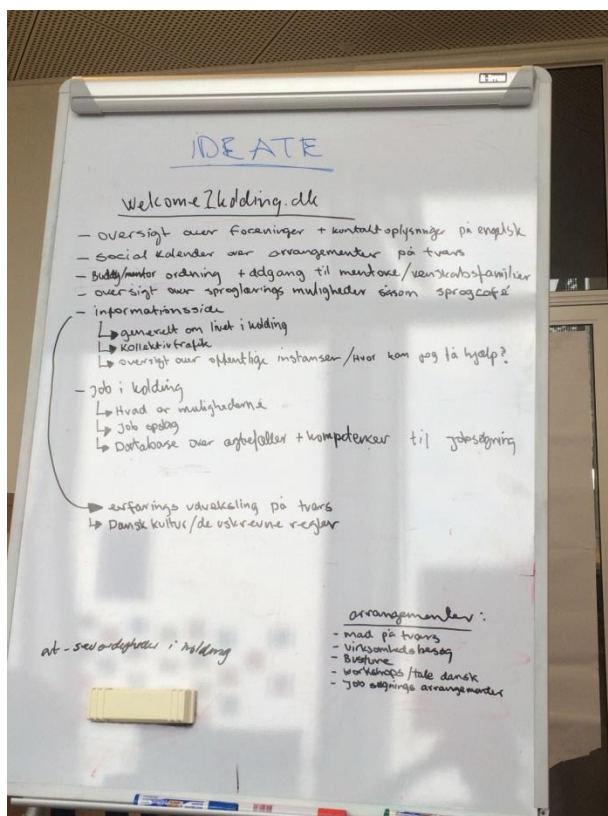 IDEATE
Welcome2kolding.dk
- oversigt over foreninger + kontakt oplysninger på engelsk
- social kalender over arrangementer på tværs
- Buddy/mentor ordning + adgang til mentore/venskabsfamilier
- oversigt over sproglærings muligheder såsom sprogcafé
- informationsside
↳ generelt om livet i kolding
↳ kollektivtrafik
↳ oversigt over offentlige instanser/Hvor kan jeg få hjælp?
- Job i kolding
↳ Hvad er mulighederne
↳ Job opslag
↳ Database over + kompetencer til jobsøgning
→ erfarings udveksling på tværs
↳ Dansk kultur/de uskrevne regler
arrangementer:
- mad på tværs
- virksomhedsbesøg
- Busture
- workshops/tale dansk
- Job søgnings arrangementer
- seværdigheder i kolding